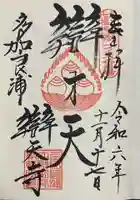 奉拝
令和六年
十一月十七日
辯才天
多加良浦
辯天寺